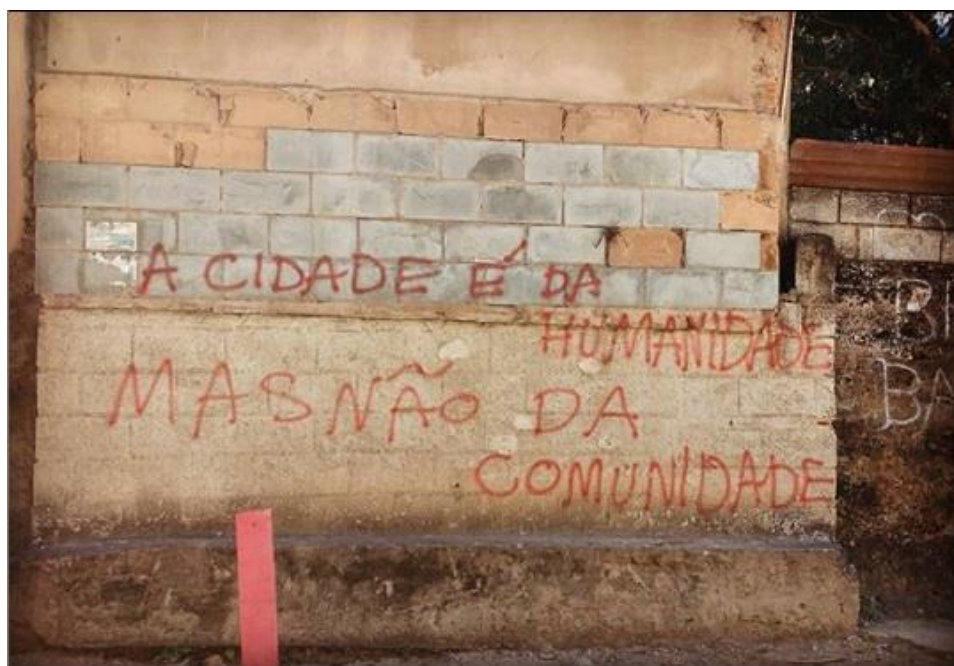 A CIDADE É DA
HUMANIDADE
MAS NÃO DA
COMUNIDADE